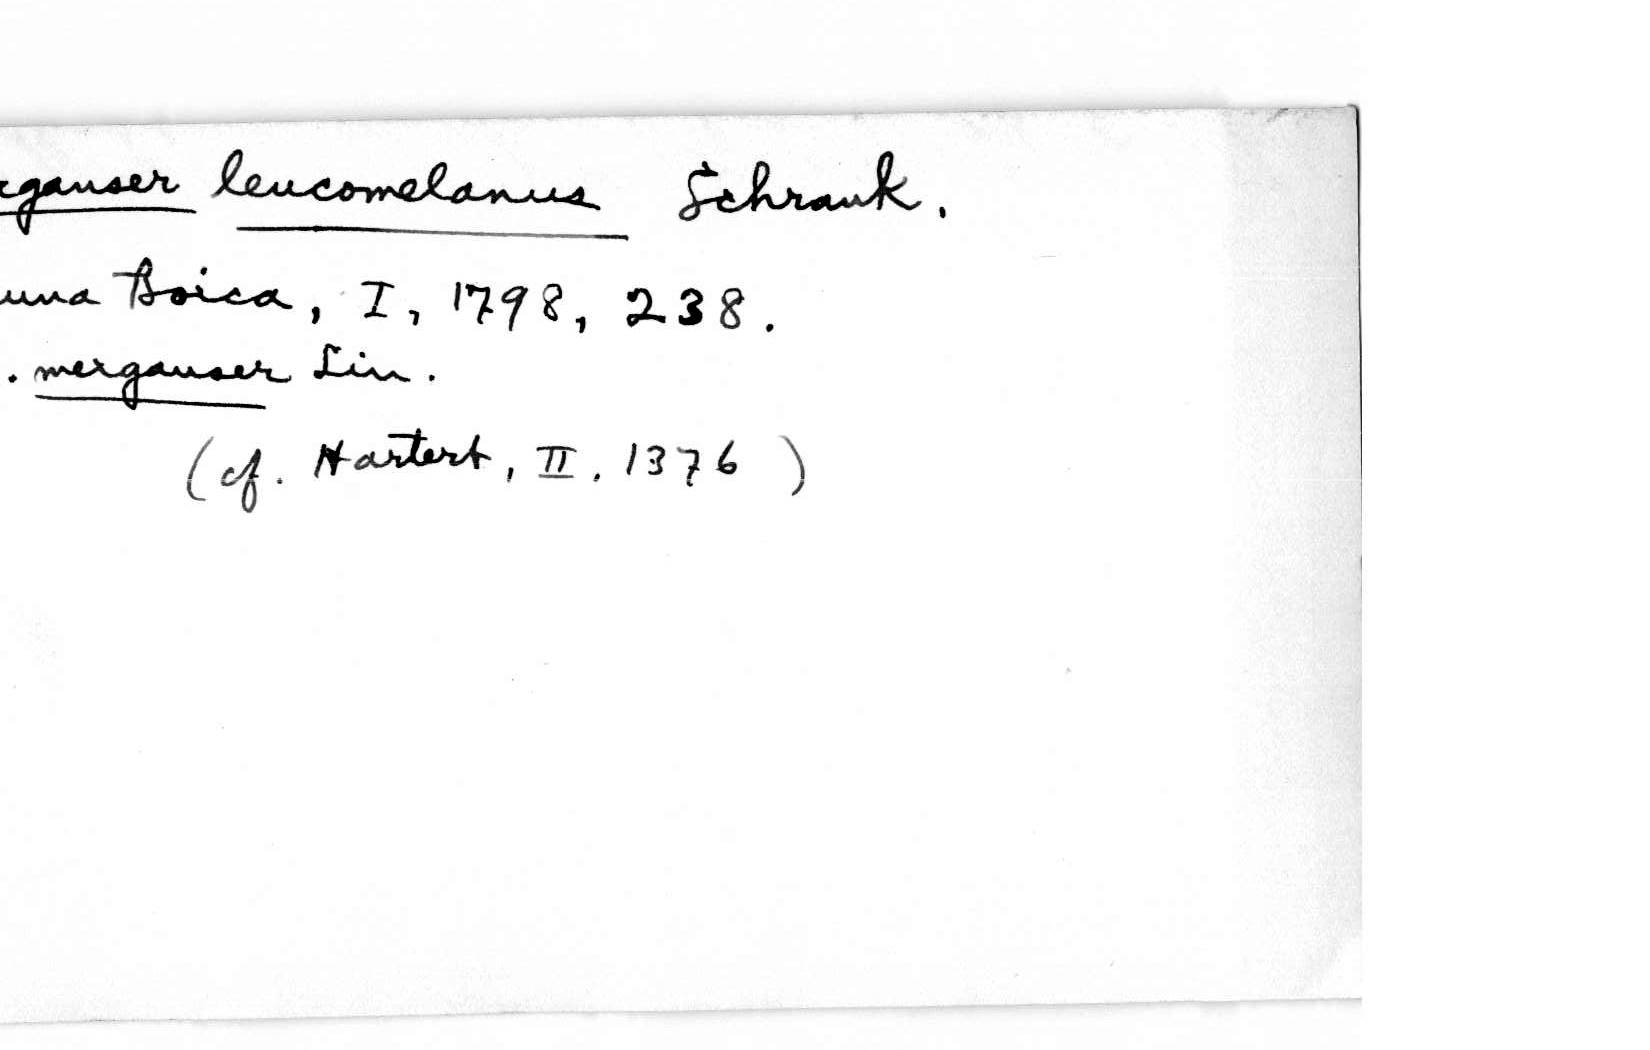 rganser leucomelanus Schrank.
una Boica, I, 1798, 238.
. merganser Lin.
(cf. Hartert, II. 1376)